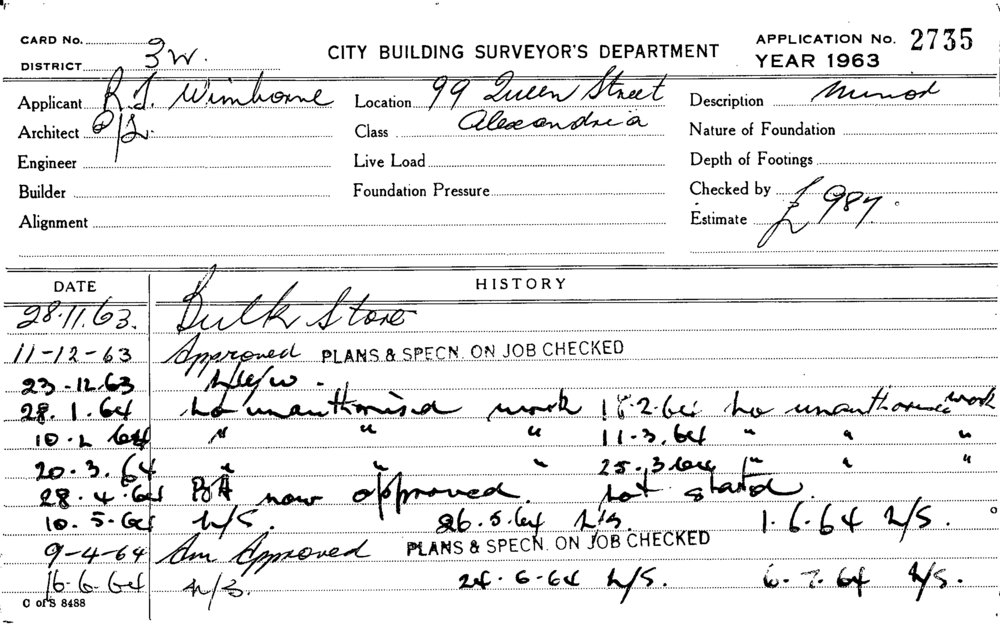 CARD No.
DISTRICT 3W.
CITY BUILDING SURVEYOR'S DEPARTMENT
APPLICATION No. 2735
YEAR 1963
Applicant R.J. Wimborne
Location 99 Queen Street
Description Minor
Architect P/L.
Class Alexandria
Nature of Foundation
Engineer
Live Load
Depth of Footings
Builder
Foundation Pressure
Checked by
Alignment
Estimate £987.
DATE HISTORY
28.11.63. Bulk Store
11-12-63 Approved PLANS & SPECN. ON JOB CHECKED
23.12.63
28.1.64 No unauthorised work 18.2.64 No unauthorised work
10.2.64 " " " 11.3.64 " " "
20.3.64 " " " 25.3.64 " " "
28.4.64 now approved. Not started.
10.5.64 N/S. 26.5.64 N/S. 1.6.64 N/S.
9-4-64 Am Approved PLANS & SPECN. ON JOB CHECKED
16.6.64 N/S. 24.6.64 N/S. 6.7.64 N/S.
C of S 8488